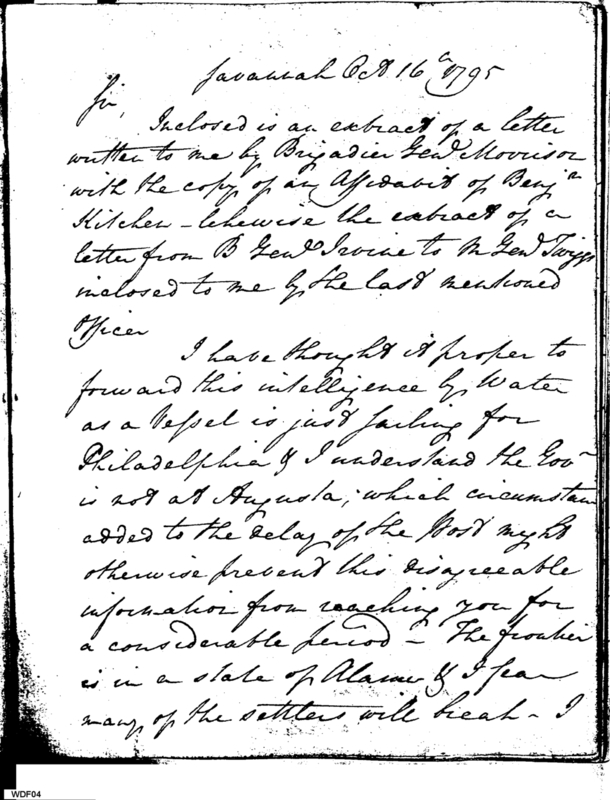 Savannah Oct 16th 1795
Sir,
Inclosed is an extract of a letter
written to me by Brigadier Genl Morrison
with the copy of an Affidavit of Benjn
Kitchen – likewise the extract of a
letter from B Genl Irwine to M Genl Twiggs
inclosed to me by the last mentioned
Officer
I have thought it proper to
forward this intelligence by Water
as a Vessel is just sailing for
Philadelphia & I understand the Govr
is not at Augusta; which circumstan
added to the delay of the Post might
otherwise prevent this disagreeable
information from reaching you for
a considerable period – The frontier
is in a state of Alarm & I fear
many of the settlers will break – I
WDF04